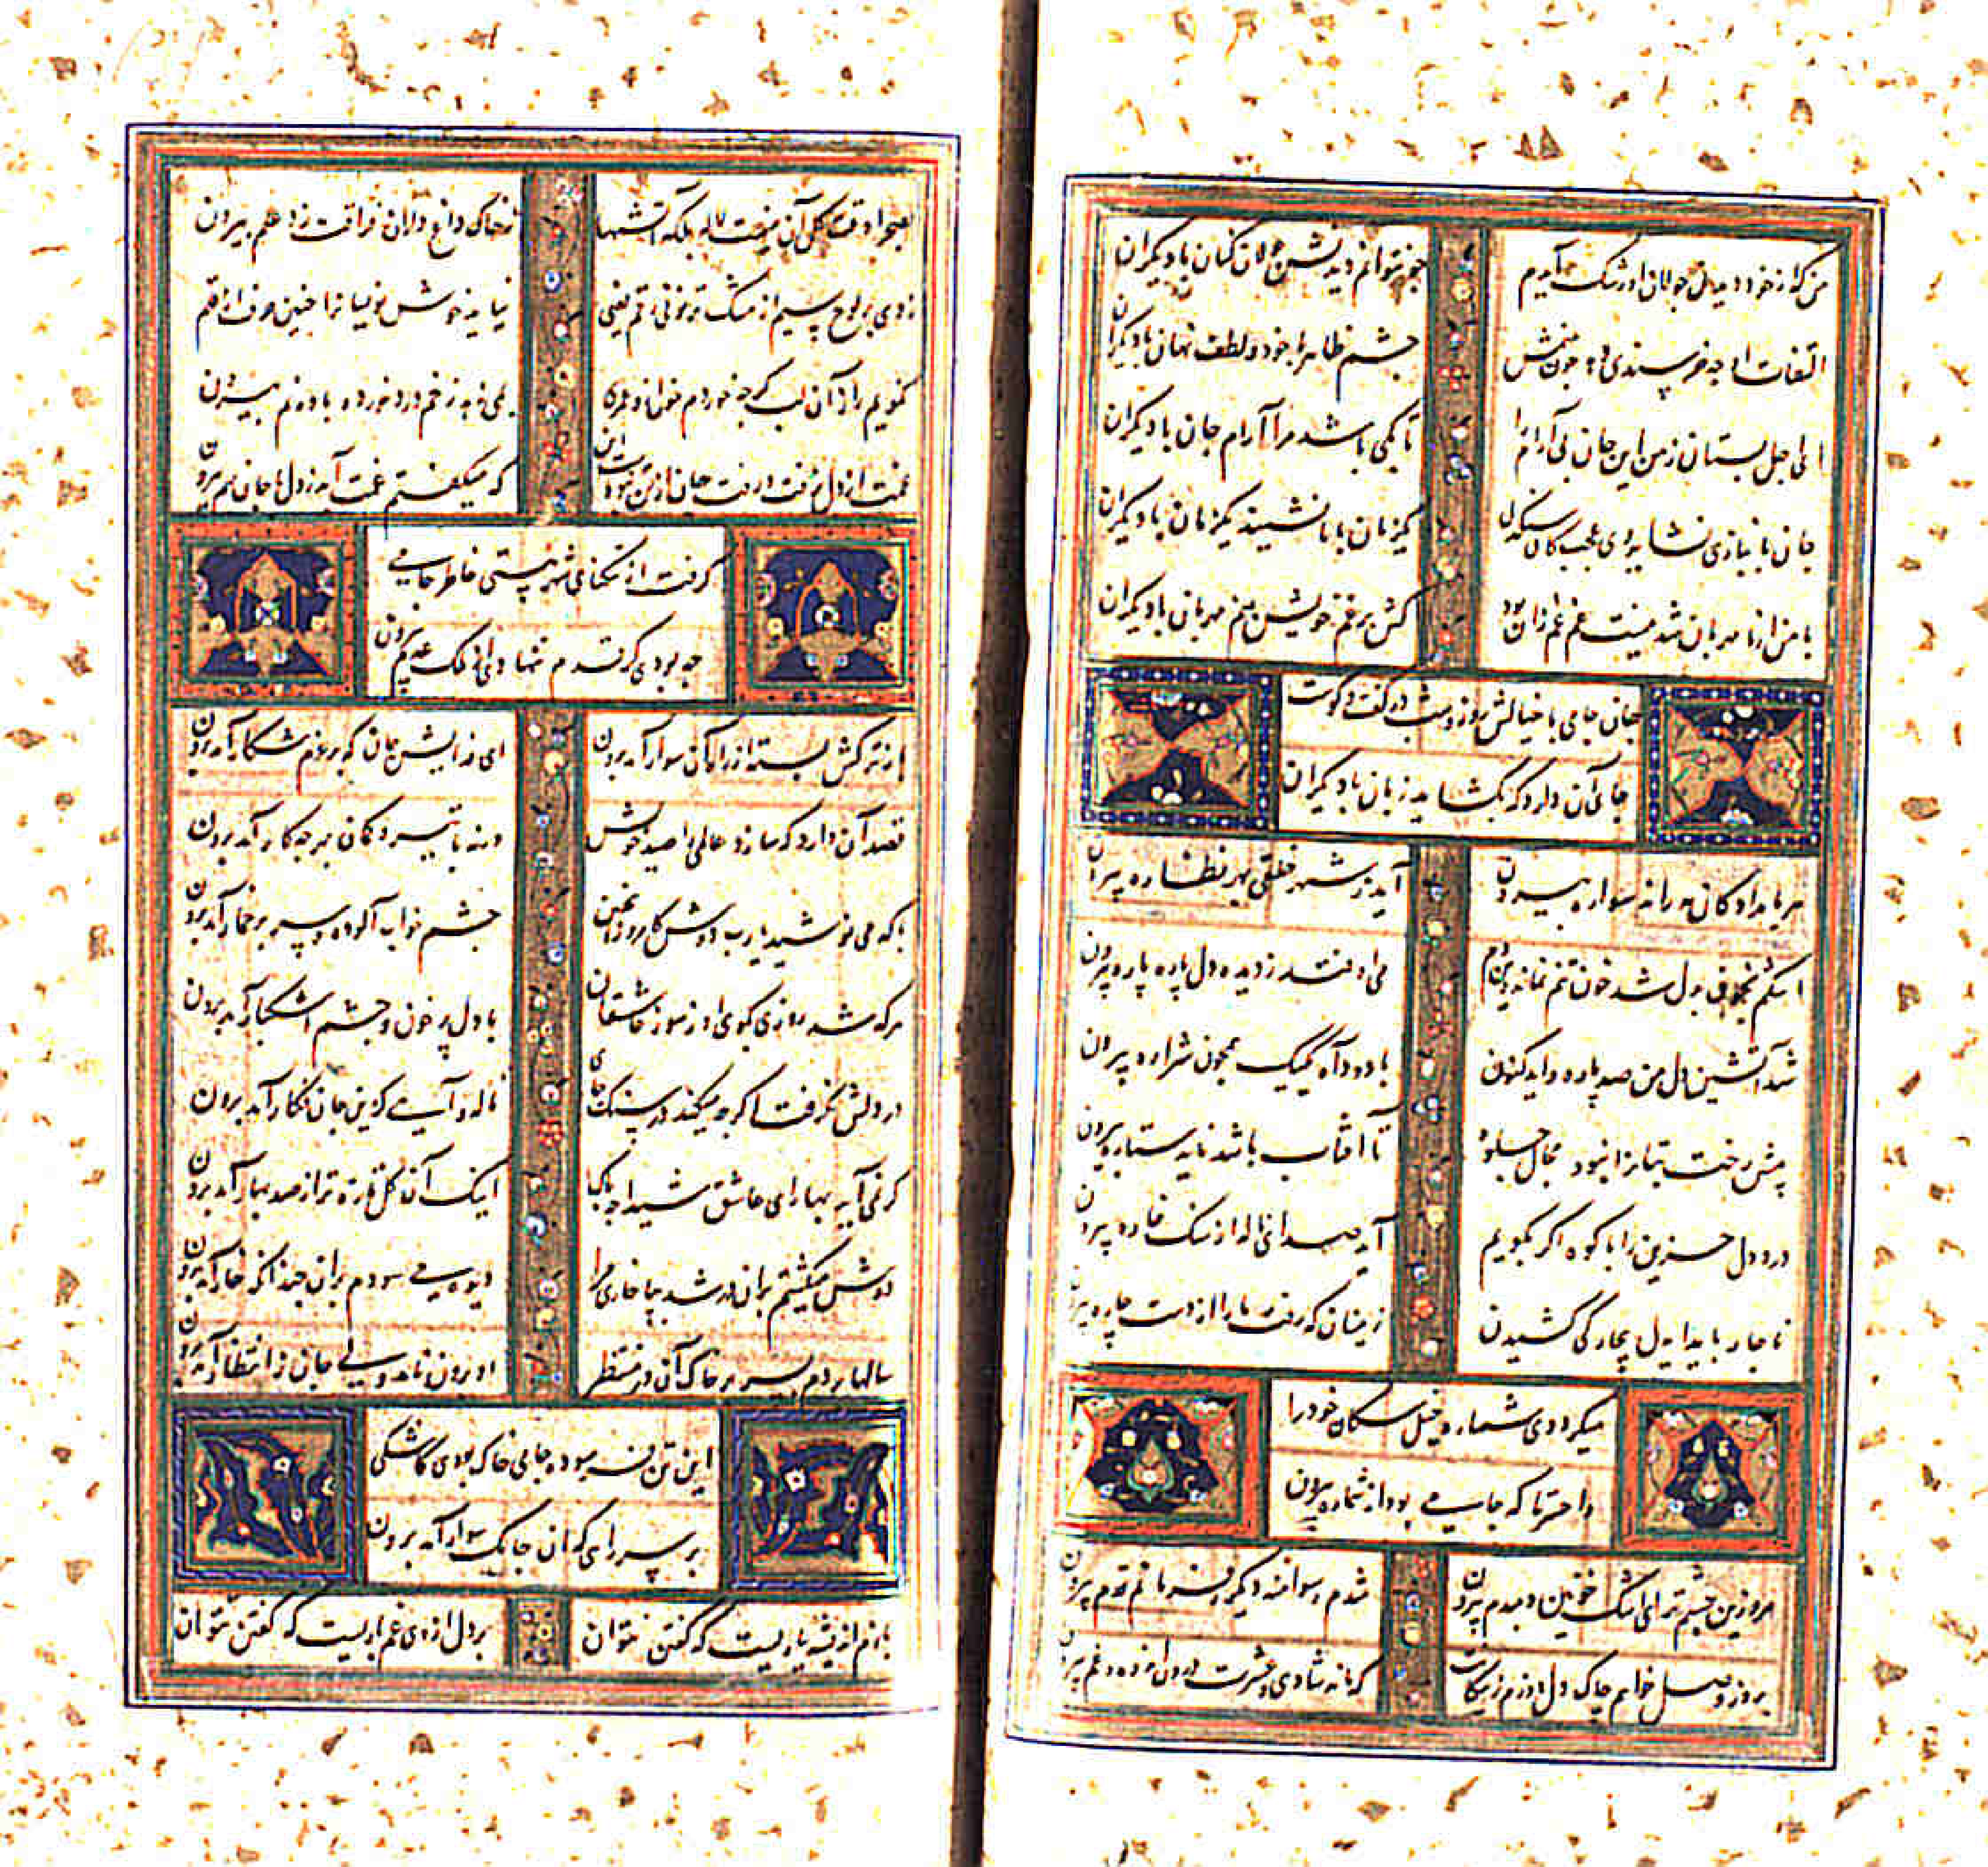 من که از خود در میدان جولان او رشک آیدم
چون توانم دیدنش جولان کنان با دیگران
التفات او چه خرسندی دهد چون بینمش
خشم ظاهر با خود و لطف نهان با دیگران
ای اجل بستان ز من این جان بی آرام را
تا بکی باشد مرا آرام جان با دیگران
جان ما
یکزمان با ما نشیند یکزمان با دیگران
با من ار نامهربان شد نیست غم غم زان بود
کش برغم خویش بینم مهربان با دیگران
جان جامی با خیالش روز و شب در گفت و گوست
جای آن دارد که نگشاید زبان با دیگران
هر بامدادکان مه راند سواره بیرون
آید ز شهر خلقی بهر نظاره بیرون
اشکم نجگونی بدل شد خون تنم نماند
می اوفتد ز دیده دل پاره پاره بیرون
شد آتشین دل من صد پاره و آید اکنون
با دود آه یک یک همچون شراره بیرون
پیش رخت بتان را نبود مجال جلوه
تا آفتاب باشد ناید ستاره بیرون
درد دل حزین را با کوه اگر بگویم
آید صدای ناله از سنگ خاره بیرون
ناچار باید ای دل بیمار کی کشیدن
زینسان که رفت ما را از دست چاره بیرون
میکرد دی شماره خیل سگان خود را
وا حسرتا که جامی بود از شماره بیرون
مرو زین چشم تر ای اشک خونین دمبدم بیرون
شدم رسوا منه دیگر ز خانم قدم بیرون
بروز وصل خواهم چاک دل دوزم ز پیکانت
که ماند شادی و عشرت درون اندوه و غم بیرون
بصحرا وقت گل آن نیست لاله بلکه آتشها
ز خاک داغ داران فراقت زد علم بیرون
زدی بر لوح سیم از مشک تر نونی رقم یعنی
نیاید خوش نویسان را چنین حرف از قلم بیرون
نگویم راز آن لب گرچه خوردم خون ازو عمری
نمی زیبد ز خم درد خورده باده نم بیرون
غمت از دل نرفت و رفت جان از تن
که میگفتم غمت آید ز دل با جان بهم بیرون
گرفت از تنگنای شهر هستی خاطر جامی
چه بودی گر قدم ننهادی از ملک عدم بیرون
باز ترکش بسته آن سوار آمد برون
ای فدایش جان که بر عزم شکار آمد برون
قصد آن دارد که سازد عالمی را صید خویش
ورنه با تیر و کمان بهر چه کار آمد برون
با که می نوشید یارب دوش کامروز این چنین
چشم خواب آلوده و سر پر خمار آمد برون
هر که شد روزی بکوی او ز سوز عاشقان
با دل پر خون و چشم اشکبار آمد برون
در دلش نگرفت اگرچه میکند در سنگ جای
ناله و آهی کزین جان فگار آمد برون
گر نمی آید بهار ای عاشق شیدا چه باک
اینک آن گل تازه تر از صد بهار آمد برون
دوش میگشتم بران در شد بپا خاری مرا
دیده می سودم بران چندانکه خار آمد برون
سالها بردم بسر بر خاک آن در منتظر
او برون نامد ولی جان ز انتظار آمد برون
این تن فرسوده جامی خاک بودی کاشکی
بر سر راهی که آن چابک سوار آمد برون
بازم اندیشه یاریست که گفتن نتوان
بر دل از وی غم باریست که گفتن نتوان